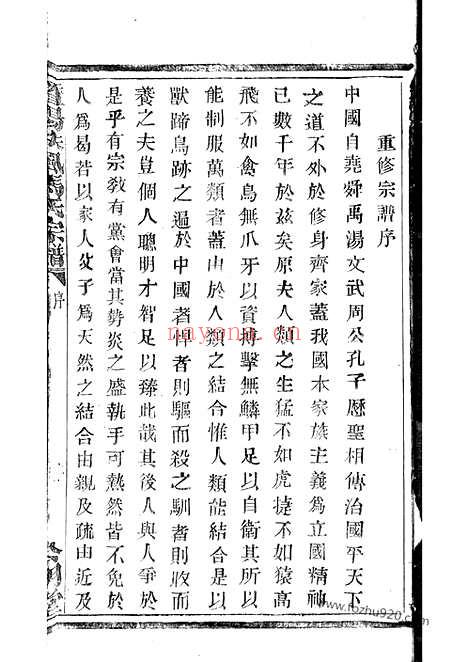 重修宗譜序
中國自堯舜禹湯文武周公孔子歷聖相傳治國平天下
之道不外於修身齊家蓋我國本家族主義爲立國精神
已數千年於茲矣原夫人類之生猛不如虎捷不如猿高
飛不如禽鳥無爪牙以資搏擊無鱗甲足以自衛其所以
能制服萬類者蓋由於人類之結合惟人類能結合是以
獸蹄鳥跡之過於中國者悍者則驅而殺之馴者則收而
養之夫豈個人聰明才智足以臻此哉其後人與人爭於
是乎有宗敎有黨會當其勢炎之盛執手可熱然皆不免於
人爲曷若以家人父子爲天然之結合由親及疏由近及
宗譜
序
nayona.cn
www.fozhu920.com